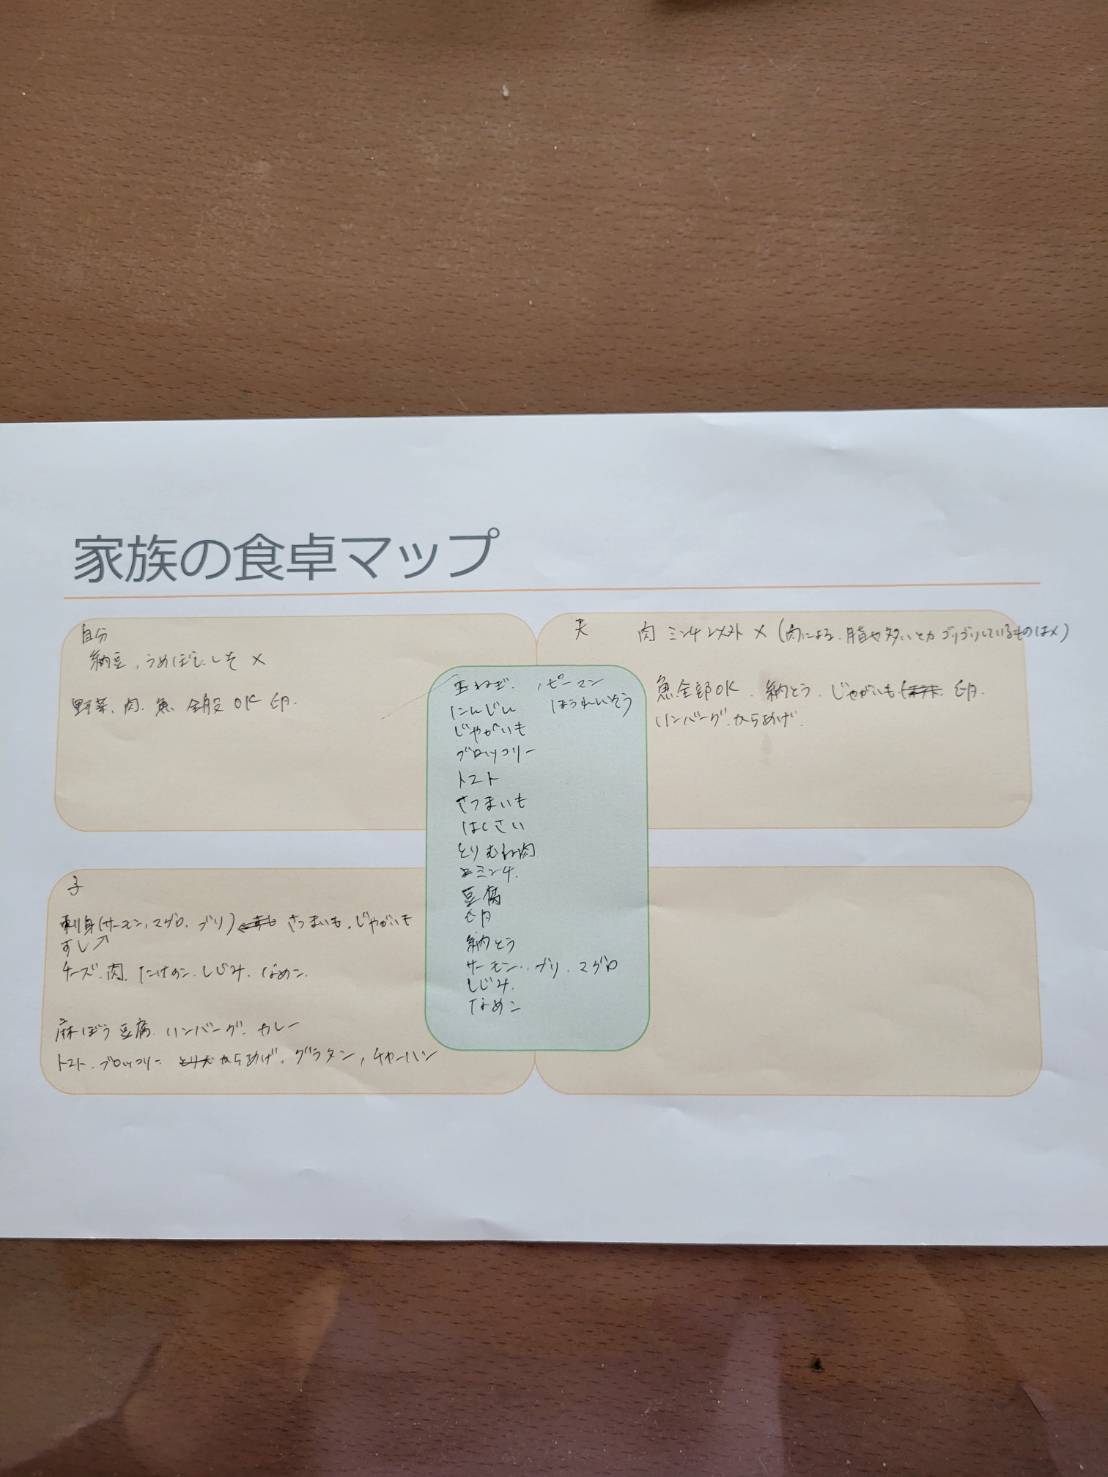 家族の食卓マップ
自分
納豆、うめぼし、しそ ×
野菜、肉、魚 全般 OK 卵
夫
肉 ミンチ以外 × (肉による、脂や多いとか ゴリゴリしているものは×)
魚全部OK、納とう、じゃがいも 卵
ハンバーグ、からあげ
玉ねぎ、ピーマン
にんじん ほうれんそう
じゃがいも
ブロッコリー
トマト
さつまいも
はくさい
とりむね肉
ミンチ
豆腐
卵
納とう
サーモン、ブリ、マグロ
しじみ
なめこ
子
刺身(サーモン、マグロ、ブリ) さつまいも、じゃがいも
すし
チーズ、肉、たけのこ、しじみ、なめこ
麻ぼう豆腐 ハンバーグ、カレー
トマト、ブロッコリー からあげ、グラタン、チャーハン